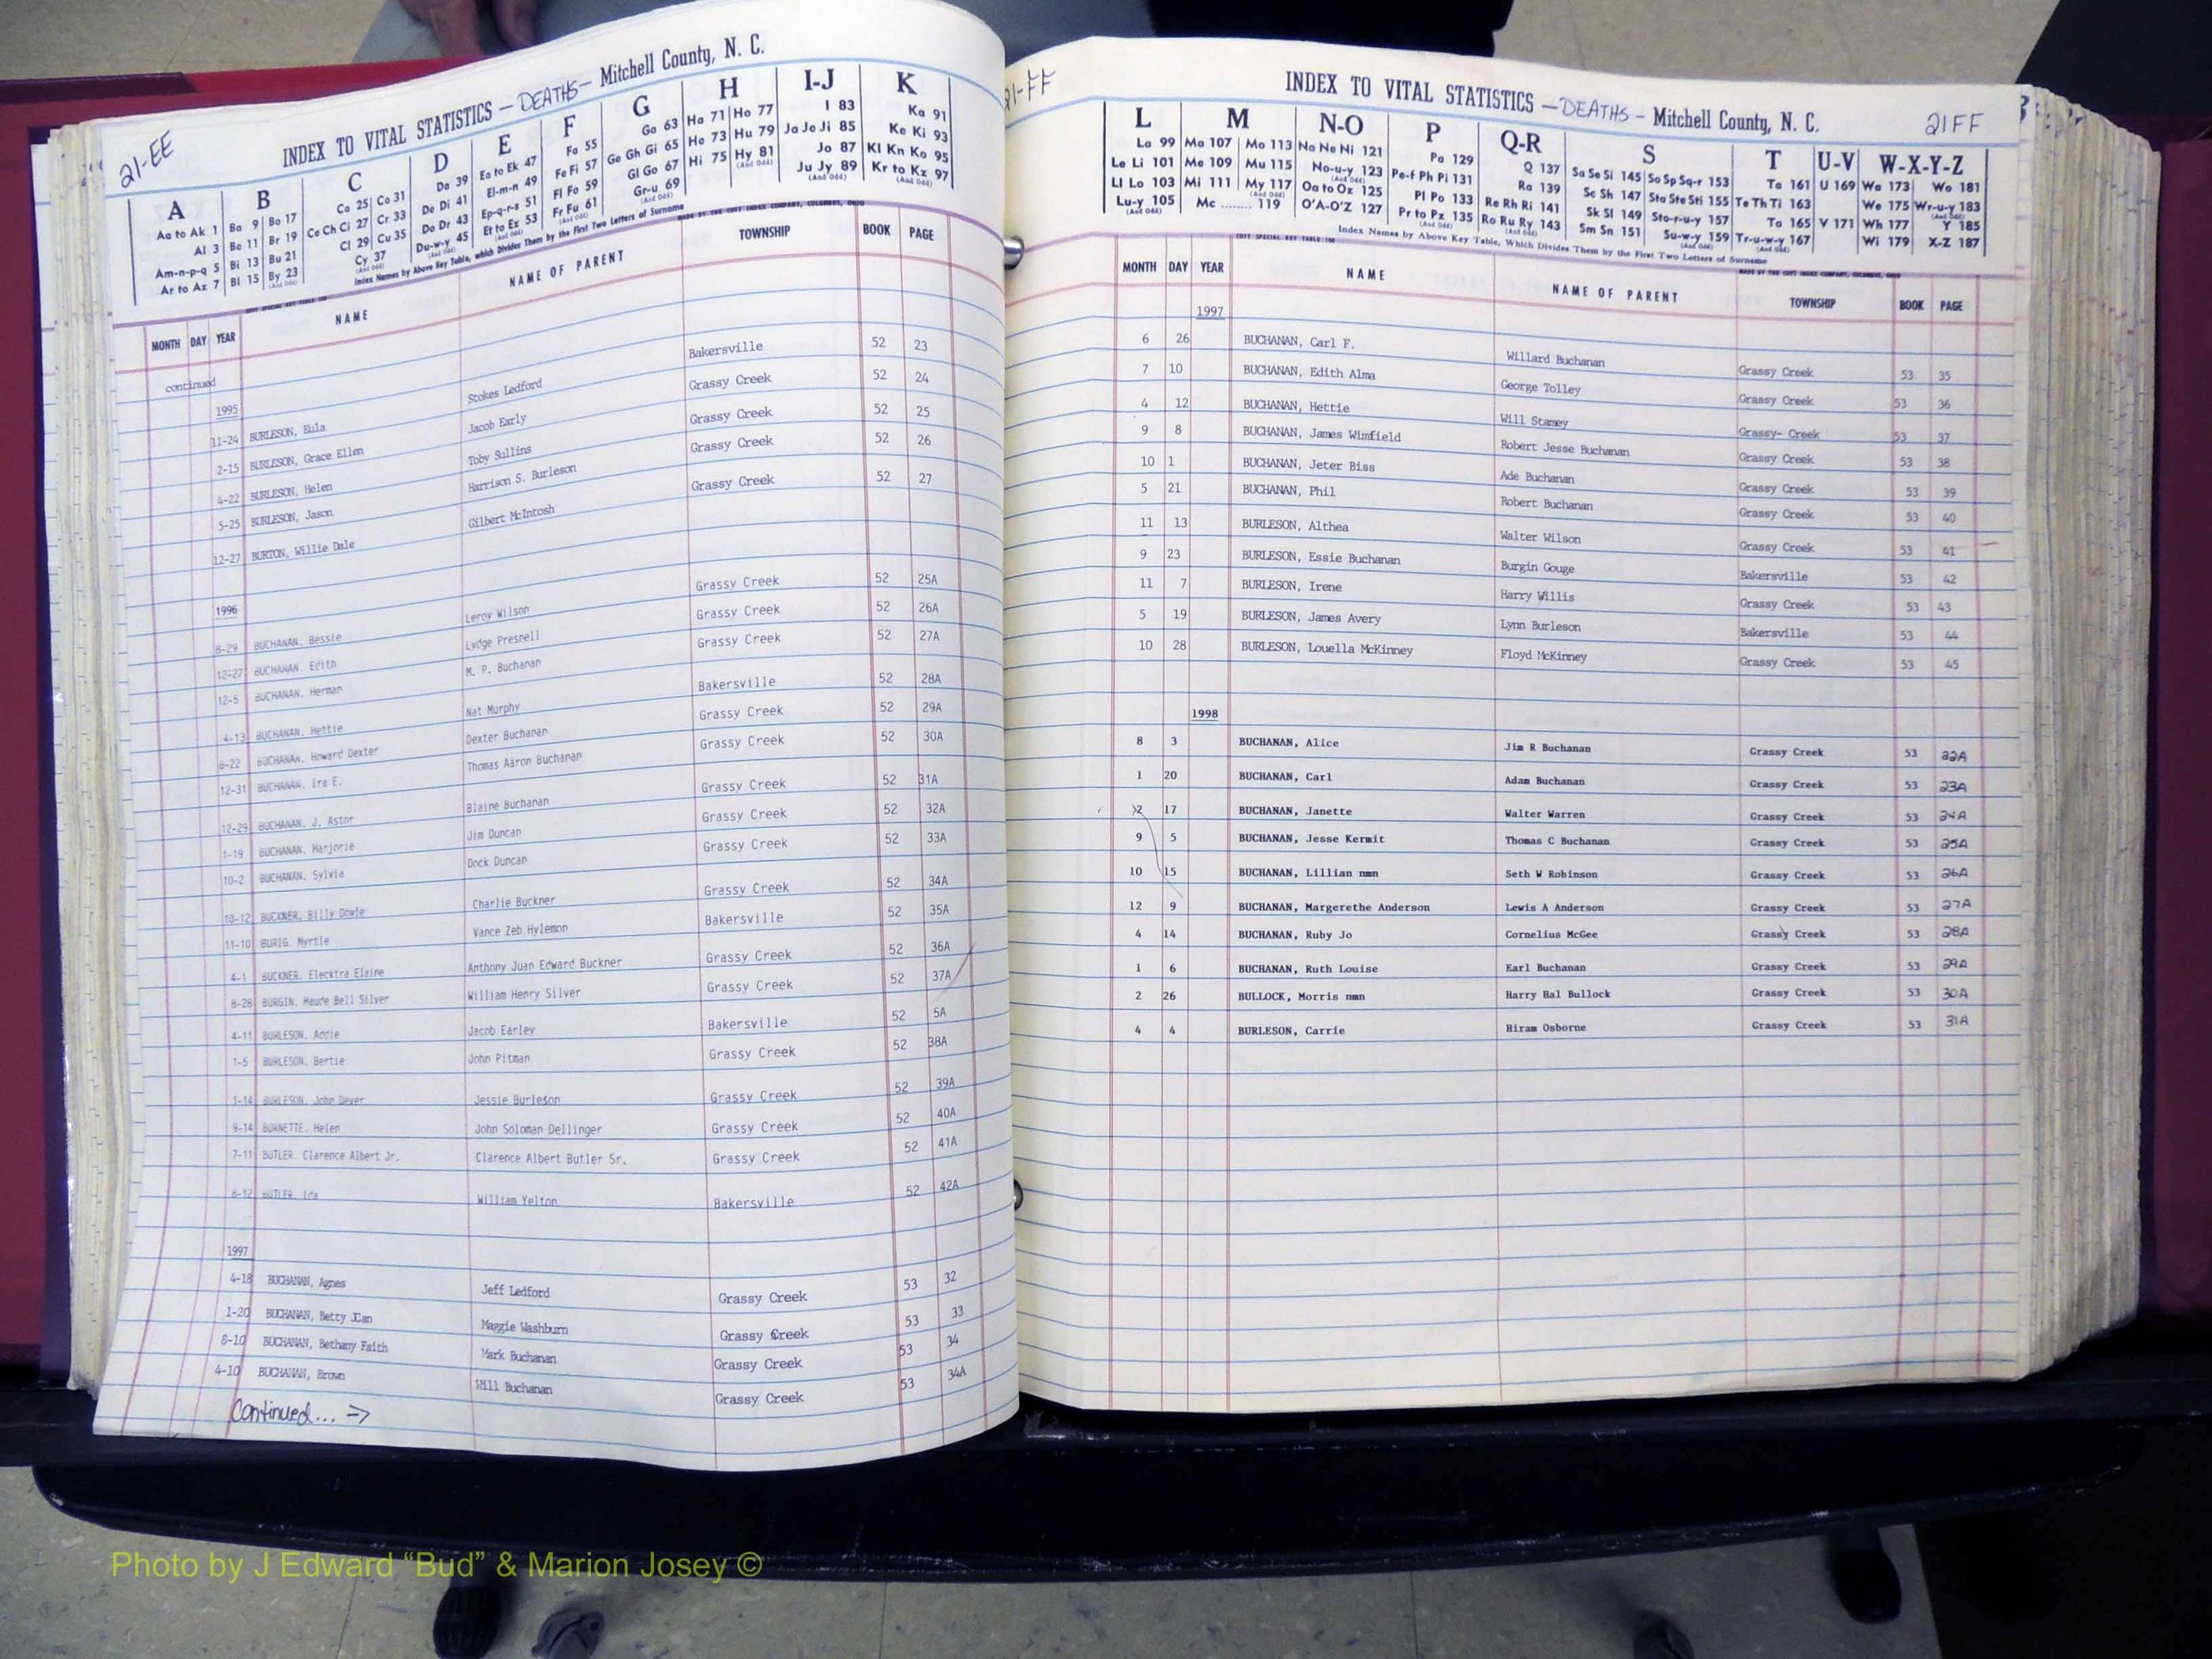 21-EE
INDEX TO VITAL STATISTICS — DEATHS — Mitchell County, N. C.
A B C D E F G H I-J K
Aa to Ak 1 Ba 9 Bo 17 Ca 25 Co 31 Da 39 Ea to Ek 47 Fa 55 Ga 63 Ha 71 Ho 77 I 83 Ka 91
Al 3 Be 11 Br 19 Ce Ch Ci 27 Cr 33 De Di 41 El-m-n 49 Fe Fi 57 Ge Gh Gi 65 He 73 Hu 79 Ja Je Ji 85 Ke Ki 93
Am-n-p-q 5 Bi 13 Bu 21 Cl 29 Cu 35 Do Dr 43 Ep-q-r-s 51 Fl Fo 59 Gl Go 67 Hi 75 Hy 81 (And Odd) Jo 87 Kl Kn Ko 95
Ar to Az 7 Bl 15 By 23 (And Odd) Cy 37 (And Odd) Du-w-y 45 (And Odd) Et to Ez 53 (And Odd) Fr Fu 61 (And Odd) Gr-u 69 (And Odd) Ju Jy 89 (And Odd) Kr to Kz 97
Index Names by Above Key Table, which Divides Them by the First Two Letters of Surname
MADE BY THE COTT INDEX COMPANY, COLUMBUS, OHIO
MONTH DAY YEAR NAME NAME OF PARENT TOWNSHIP BOOK PAGE
continued
1995
11-24 BURLESON, Eula Stokes Ledford Bakersville 52 23
2-15 BURLESON, Grace Ellen Jacob Early Grassy Creek 52 24
4-22 BURLESON, Helen Toby Sullins Grassy Creek 52 25
5-25 BURLESON, Jason Harrison S. Burleson Grassy Creek 52 26
12-27 BURTON, Willie Dale Gilbert McIntosh Grassy Creek 52 27
1996
8-29 BUCHANAN, Bessie Leroy Wilson Grassy Creek 52 25A
12-27 BUCHANAN, Edith Lydge Presnell Grassy Creek 52 26A
12-5 BUCHANAN, Herman M. P. Buchanan Grassy Creek 52 27A
4-13 BUCHANAN, Hettie Nat Murphy Bakersville 52 28A
8-22 BUCHANAN, Howard Dexter Dexter Buchanan Grassy Creek 52 29A
12-31 BUCHANAN, Ira E. Thomas Aaron Buchanan Grassy Creek 52 30A
12-29 BUCHANAN, J. Astor Blaine Buchanan Grassy Creek 52 31A
1-19 BUCHANAN, Marjorie Jim Duncan Grassy Creek 52 32A
10-2 BUCHANAN, Sylvia Dock Duncan Grassy Creek 52 33A
10-12 BUCKNER, Billy Doyle Charlie Buckner Grassy Creek 52 34A
11-10 BURIG, Myrtle Vance Zeb Hylemon Bakersville 52 35A
4-1 BUCKNER, Elecktra Elaine Anthony Juan Edward Buckner Grassy Creek 52 36A
8-28 BURGIN, Maude Bell Silver William Henry Silver Grassy Creek 52 37A
4-11 BURLESON, Addie Jacob Earley Bakersville 52 5A
1-5 BURLESON, Bertie John Pitman Grassy Creek 52 38A
1-14 BURLESON, John Dever Jessie Burleson Grassy Creek 52 39A
9-14 BURNETTE, Helen John Soloman Dellinger Grassy Creek 52 40A
7-11 BUTLER, Clarence Albert Jr. Clarence Albert Butler Sr. Grassy Creek 52 41A
8-12 BUTLER, Ida William Yelton Bakersville 52 42A
1997
4-18 BUCHANAN, Agnes Jeff Ledford Grassy Creek 53 32
1-20 BUCHANAN, Betty Maggie Washburn Grassy Creek 53 33
8-10 BUCHANAN, Bethany Faith Mark Buchanan Grassy Creek 53 34
4-10 BUCHANAN, Brown Will Buchanan Grassy Creek 53 34A
Continued... ⇒
21-FF
INDEX TO VITAL STATISTICS — DEATHS — Mitchell County, N. C.
21FF
L M N-O P Q-R S T U-V W-X-Y-Z
La 99 Ma 107 Mo 113 Na Ne Ni 121 Pa 129 Q 137 Sa Se Si 145 So Sp Sq-r 153 Ta 161 U 169 Wa 173 Wo 181
Le Li 101 Me 109 Mu 115 No-u-y 123 (And Odd) Pe-f Ph Pi 131 Ra 139 Sc Sh 147 Sta Ste Sti 155 Te Th Ti 163 We 175 Wr-u-y 183 (And Odd)
Ll Lo 103 Mi 111 My 117 (And Odd) Oa to Oz 125 Pl Po 133 Re Rh Ri 141 Sk Sl 149 Sto-r-u-y 157 To 165 V 171 Wh 177 Y 185
Lu-y 105 (And Odd) Mc ........ 119 O'A-O'Z 127 Pr to Pz 135 Ro Ru Ry 143 (And Odd) Sm Sn 151 Su-w-y 159 (And Odd) Tr-u-w-y 167 (And Odd) Wi 179 X-Z 187
Index Names by Above Key Table, Which Divides Them by the First Two Letters of Surname
COTT SPECIAL KEY TABLE 100 MADE BY THE COTT INDEX COMPANY, COLUMBUS, OHIO
MONTH DAY YEAR NAME NAME OF PARENT TOWNSHIP BOOK PAGE
1997
6 26 BUCHANAN, Carl F. Willard Buchanan Grassy Creek 53 35
7 10 BUCHANAN, Edith Alma George Tolley Grassy Creek 53 36
4 12 BUCHANAN, Hettie Will Stamey Grassy- Creek 53 37
9 8 BUCHANAN, James Wimfield Robert Jesse Buchanan Grassy Creek 53 38
10 1 BUCHANAN, Jeter Biss Ade Buchanan Grassy Creek 53 39
5 21 BUCHANAN, Phil Robert Buchanan Grassy Creek 53 40
11 13 BURLESON, Althea Walter Wilson Grassy Creek 53 41
9 23 BURLESON, Essie Buchanan Burgin Gouge Bakersville 53 42
11 7 BURLESON, Irene Harry Willis Grassy Creek 53 43
5 19 BURLESON, James Avery Lynn Burleson Bakersville 53 44
10 28 BURLESON, Louella McKinney Floyd McKinney Grassy Creek 53 45
1998
8 3 BUCHANAN, Alice Jim R Buchanan Grassy Creek 53 22A
1 20 BUCHANAN, Carl Adam Buchanan Grassy Creek 53 23A
12 17 BUCHANAN, Janette Walter Warren Grassy Creek 53 24A
9 5 BUCHANAN, Jesse Kermit Thomas C Buchanan Grassy Creek 53 25A
10 15 BUCHANAN, Lillian nmn Seth W Robinson Grassy Creek 53 26A
12 9 BUCHANAN, Margerethe Anderson Lewis A Anderson Grassy Creek 53 27A
4 14 BUCHANAN, Ruby Jo Cornelius McGee Grassy Creek 53 28A
1 6 BUCHANAN, Ruth Louise Earl Buchanan Grassy Creek 53 29A
2 26 BULLOCK, Morris nmn Harry Hal Bullock Grassy Creek 53 30A
4 4 BURLESON, Carrie Hiram Osborne Grassy Creek 53 31A
Photo by J Edward “Bud” & Marion Josey ©